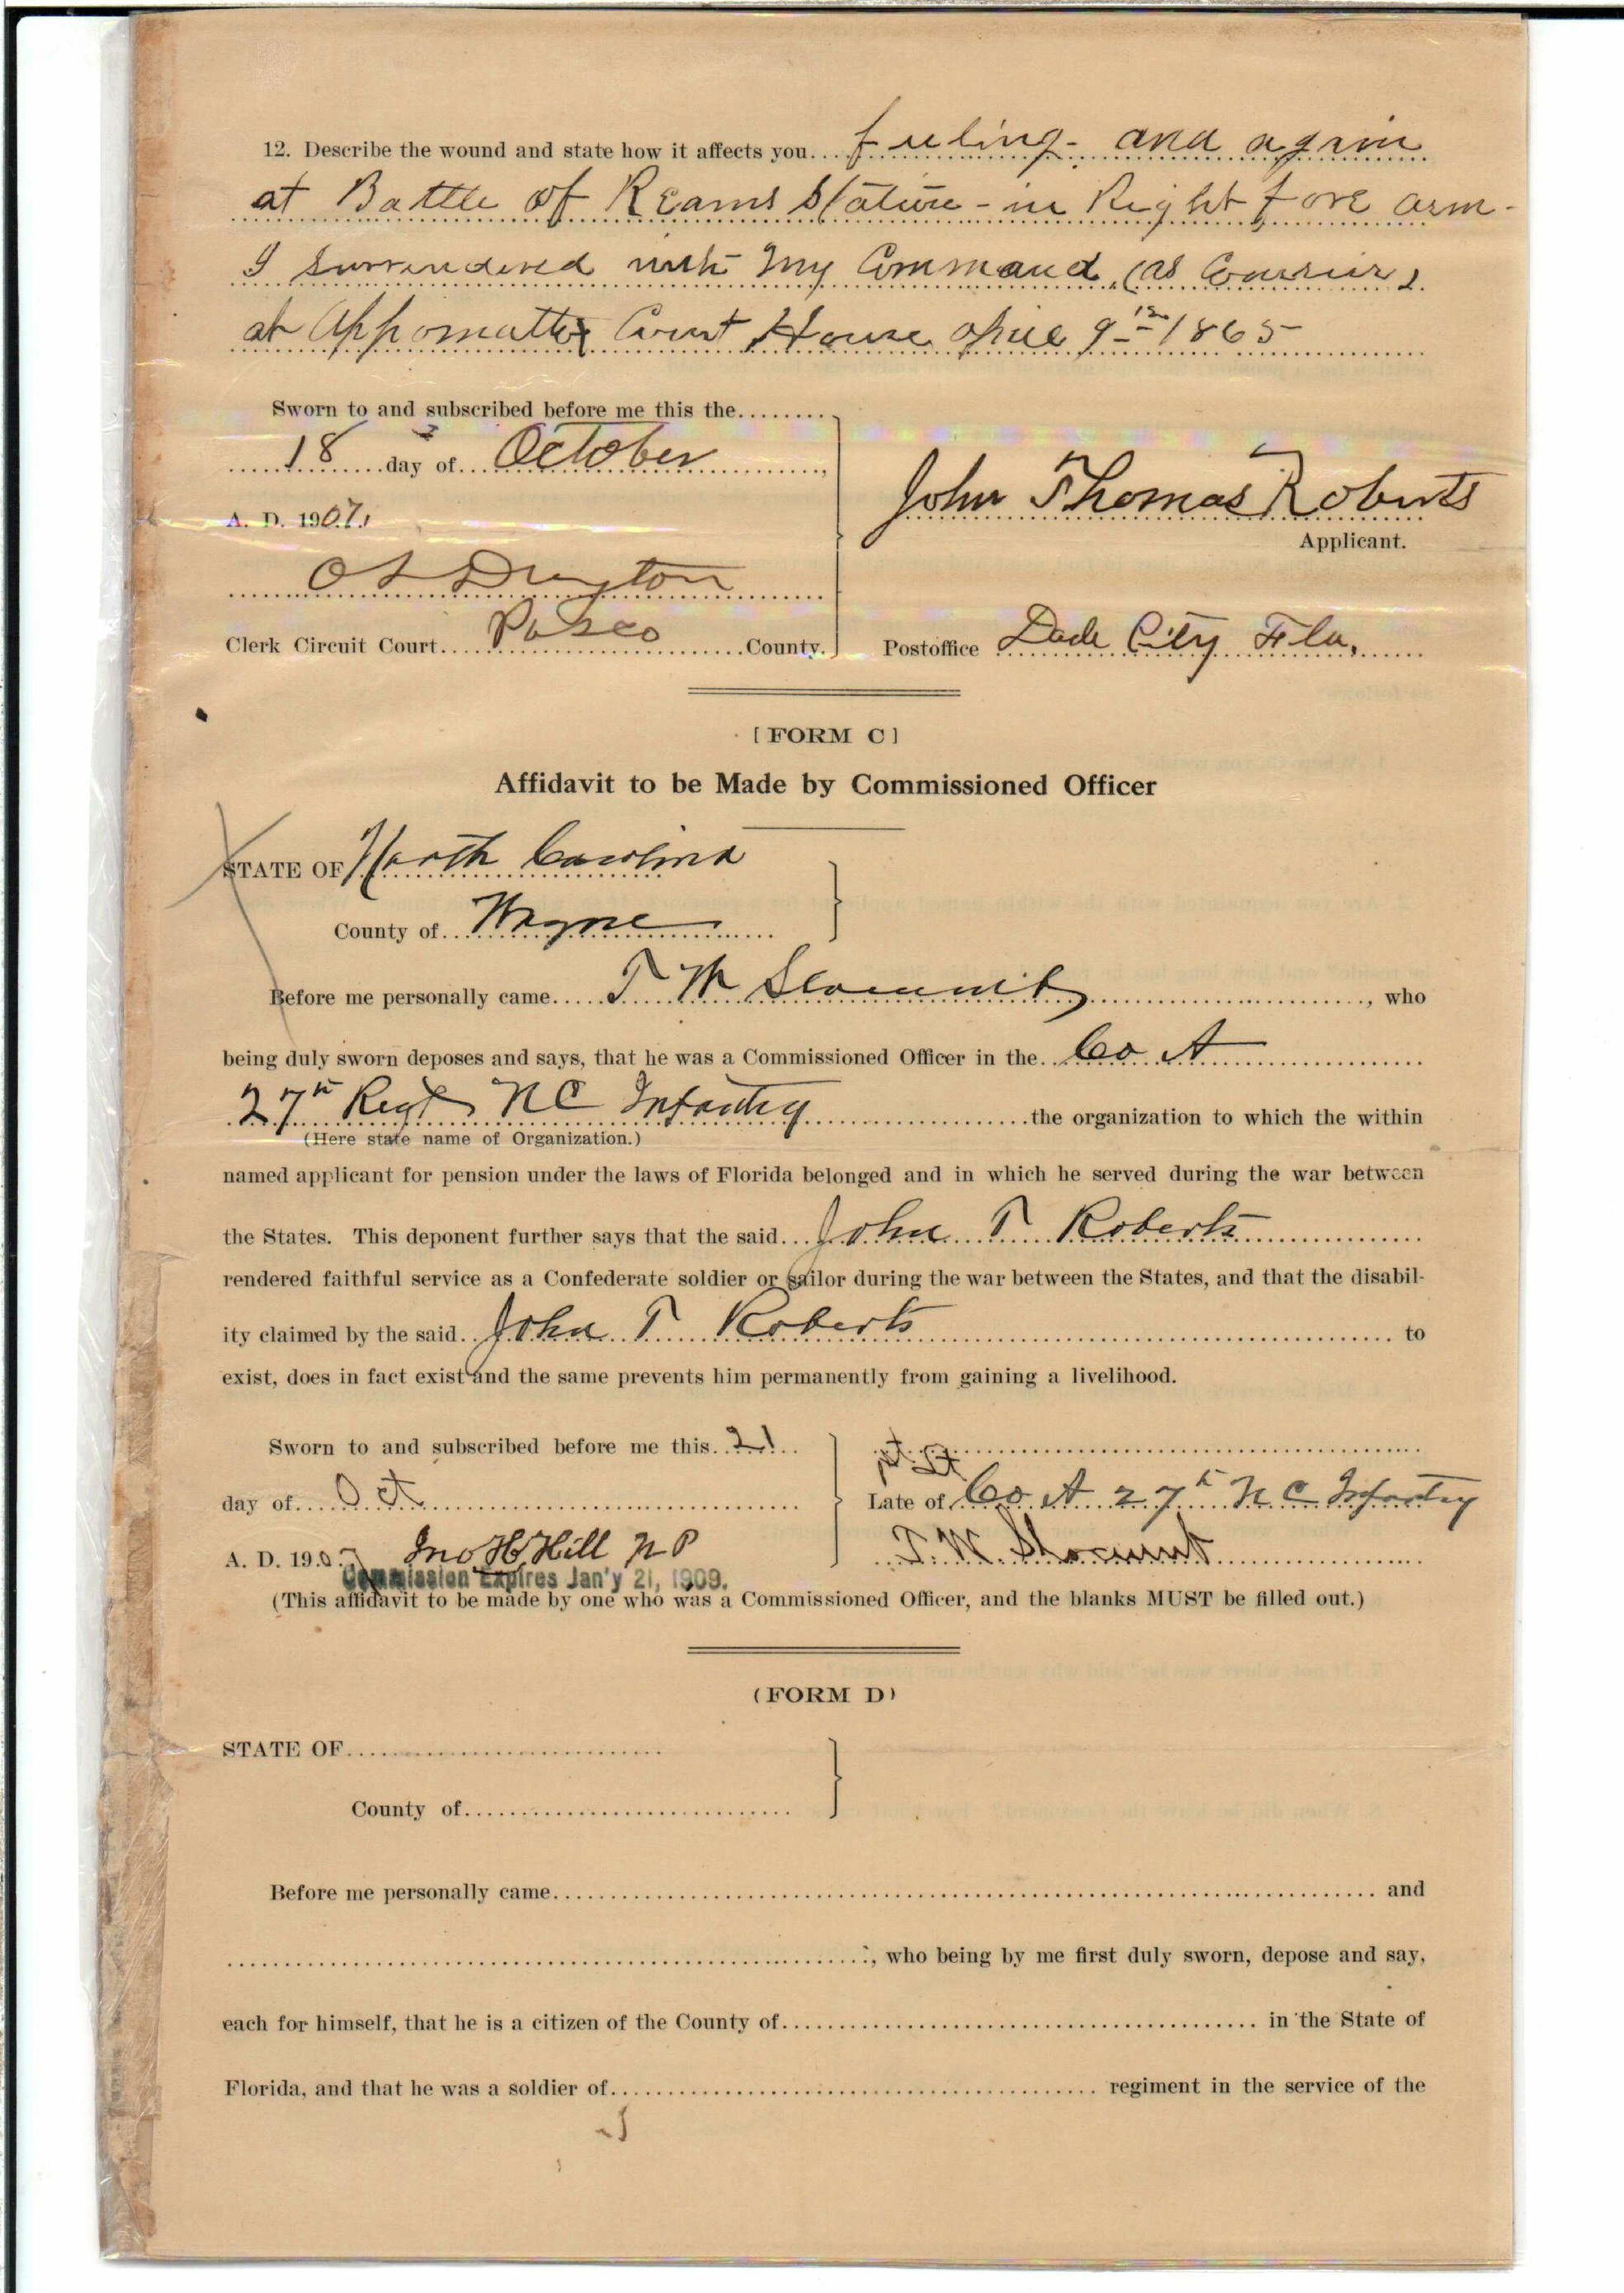 12. Describe the wound and state how it affects you... feeling - and again
at Battle of Reams Station - in Right fore arm -
I surrendered with my Command, (as Courier)
at Appomattox Court House April 9th 1865
Sworn to and subscribed before me this the
18 day of October
A. D. 1907,
John Thomas Roberts
Applicant.
Clerk Circuit Court Pasco County.
Postoffice Dade City Fla,
[FORM C]
Affidavit to be Made by Commissioned Officer
STATE OF North Carolina
County of Wayne
Before me personally came T W Slocumb, who
being duly sworn deposes and says, that he was a Commissioned Officer in the Co A
27th Regt NC Infantry the organization to which the within
(Here state name of Organization.)
named applicant for pension under the laws of Florida belonged and in which he served during the war between
the States. This deponent further says that the said John T Roberts
rendered faithful service as a Confederate soldier or sailor during the war between the States, and that the disabil-
ity claimed by the said John T Roberts to
exist, does in fact exist and the same prevents him permanently from gaining a livelihood.
Sworn to and subscribed before me this 21
day of Oct
A. D. 1907 Jno H Hill N P
Commission Expires Jan'y 21, 1909.
1st Lt
Late of Co A 27th N C Infantry
T. W. Slocumb
(This affidavit to be made by one who was a Commissioned Officer, and the blanks MUST be filled out.)
(FORM D)
STATE OF
County of
Before me personally came and
, who being by me first duly sworn, depose and say,
each for himself, that he is a citizen of the County of in the State of
Florida, and that he was a soldier of regiment in the service of the